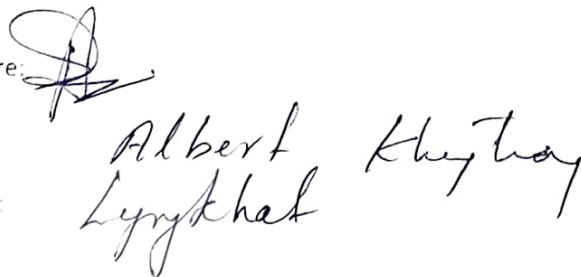 re:
Albert Kheytray
Lyngkhat